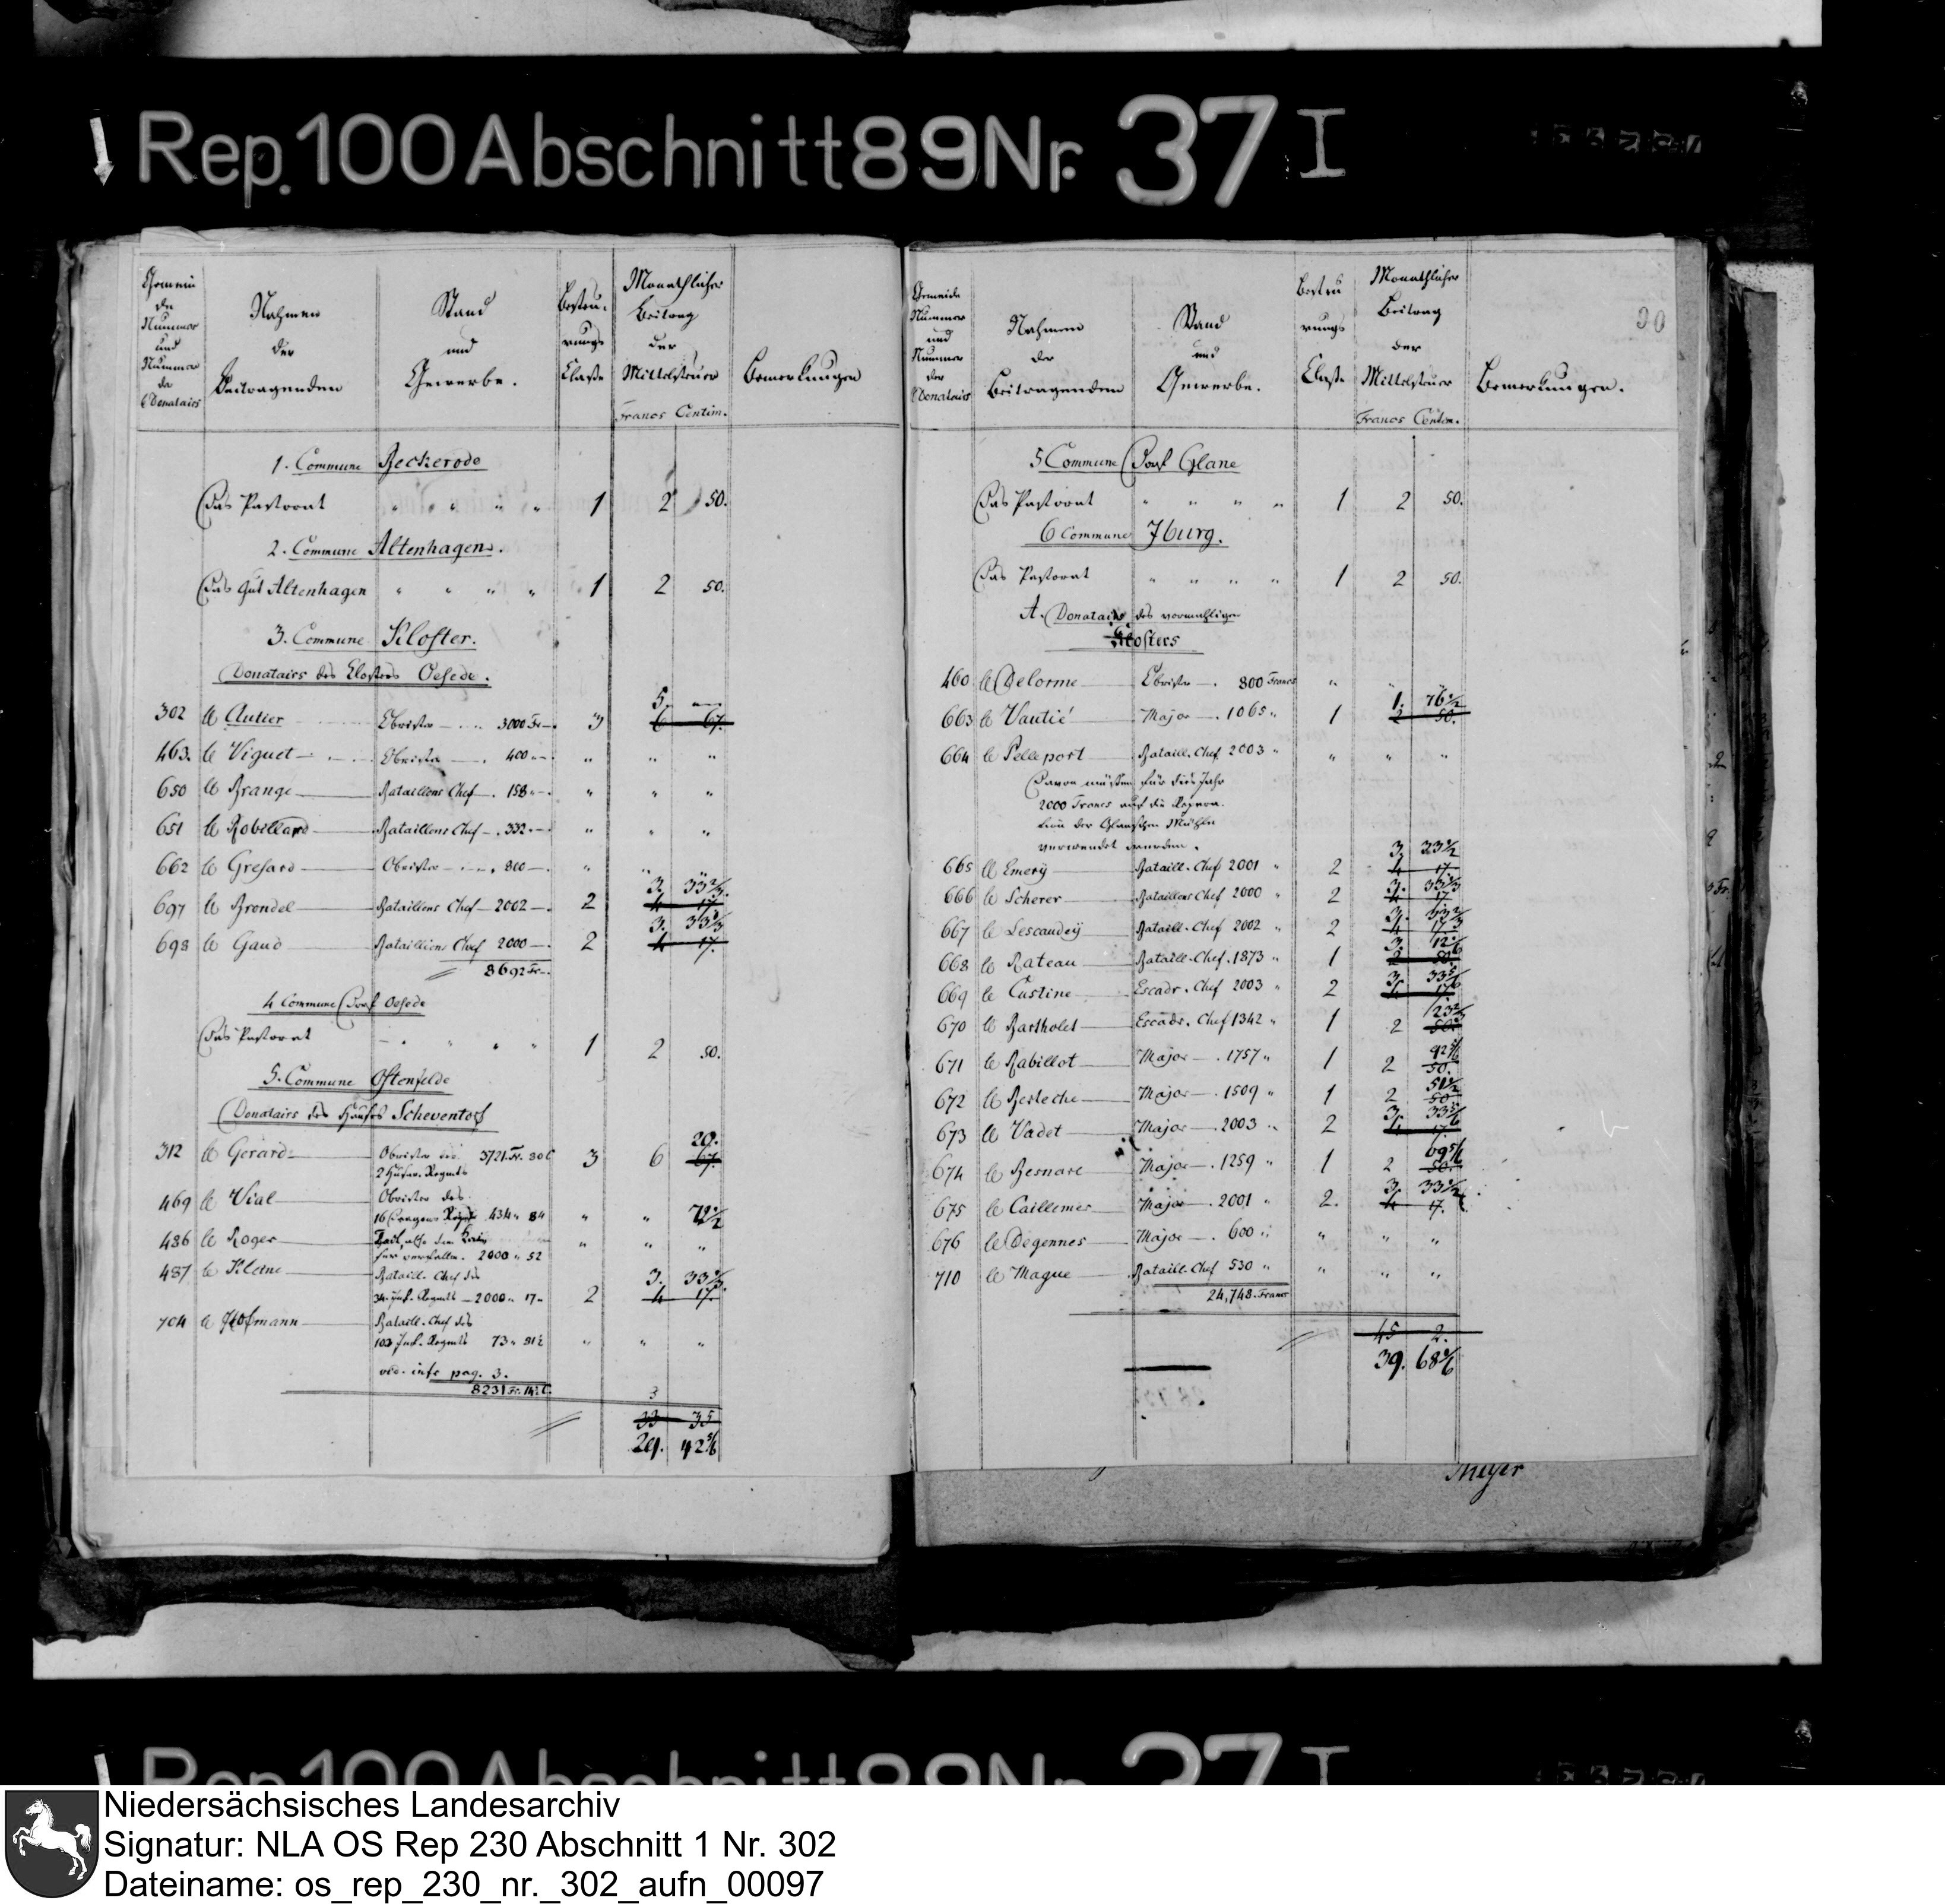 Rep. 100 Abschnitt 89 Nr. 37 I
Nahmen der Beitragenden
Stand und Gewerbe.
Besteu-rungs Classe
Monathlicher Beitrag der Mittelsteuer
Francs Centim.
Bemerkungen
1. Commune Reckerode
Das Pastorat " " " " 1 2 50.
2. Commune Altenhagen.
Das Gut Altenhagen " " " " 1 2 50.
3. Commune Kloster.
Donatairs des Closters Oesede.
5. "
302 le Autier Obrister 3000 Fr. 3 6 67.
463. le Viguet Obrister 400 " " "
650 le Brange Bataillons Chef 158 " " "
651 le Robillard Bataillons Chef 332 " " "
662 le Gresard Obrister 800 " "
3. 33 2/3.
697 le Brondel Bataillons Chef 2002 2 4 17
3. 33 1/3
698 le Gaud Bataillons Chef 2000 2 4 17.
8692 Fr.
4 Commune Dorf Oesede
Das Pastorat " " " 1 2 50.
5. Commune Ostenfelde
Donatairs des Hauses Scheventorf
20.
312 le Gerard Obrister des 3721 Fr. 30 C 3 6 67.
2 Husar. Regmts
469 le Vial Obrister des
16 Dragon 434 " 84 " " 72 1/2
486 le Roger
2000 " 52 " " "
487 le Kleine Bataill. Chef des 3. 33
34. Inf. Regmts 2000 " 17 2 4 17.
704 le Hofmann Bataill. Chef des
103 Inf. Regmts 73 " " "
vid. infr pag. 3.
8231 Fr. 14 C.
3
33 35
29. 42 5/6
30
Nahmen der Beitragenden
Stand und Gewerbe.
Besteu rungs Classe
Monathlicher Beitrag der Mittelsteuer
Francs Centim.
Bemerkungen.
5 Commune Dorf Glane
Das Pastorat " " " " 1 2 50.
6 Commune Iburg.
Das Pastorat " " " " 1 2 50.
A. Donatairs des vormahligen
Klosters
460 le Delorme Obrister 800 Francs " " "
1. 76 1/2
663 le Vautié Major 1065 " 1 2 50.
664 le Pelleport Bataill. Chef 2003 " " " "
Davon müssen für dies Jahr
2000 Francs auf die Repara-
tion der Glanschen Mühle
verwendet werden.
3. 33 1/2
665 le Emery Bataill. Chef 2001 " 2 4 17
3. 33 1/3
666 le Scherer Bataillons Chef 2000 " 2 4 17
667 le Lescaudeÿ Bataill. Chef 2002 " 2 4 17
3. 12
668 le Rateau Bataill. Chef. 1873 " 1 2 50.
3. 33 5/6
669 le Custine Escadr. Chef 2003 " 2 4 17
670 le Bartholet Escadr. Chef 1342 " 1 2 50.
92 5/6
671 le Rabillot Major 1757 " 1 2 50.
51 1/2
672 le Berleche Major 1509 " 1 2 50
3. 33 5/6
673 le Vadet Major 2003 " 2 4 17.
09 5/6
674 le Besnare Major 1259 " 1 2 50.
3. 33 1/2
675 le Caillemer Major 2001 " 2. 4 17.
676 le Degennes Major 600 " " " "
710 le Mague Bataill. Chef 530 " " " "
24,748. Francs
45 2.
39. 68 2/6
Meyer
Rep. 100 Abschnitt 89 Nr. 37 I
Niedersächsisches Landesarchiv
Signatur: NLA OS Rep 230 Abschnitt 1 Nr. 302
Dateiname: os_rep_230_nr._302_aufn_00097